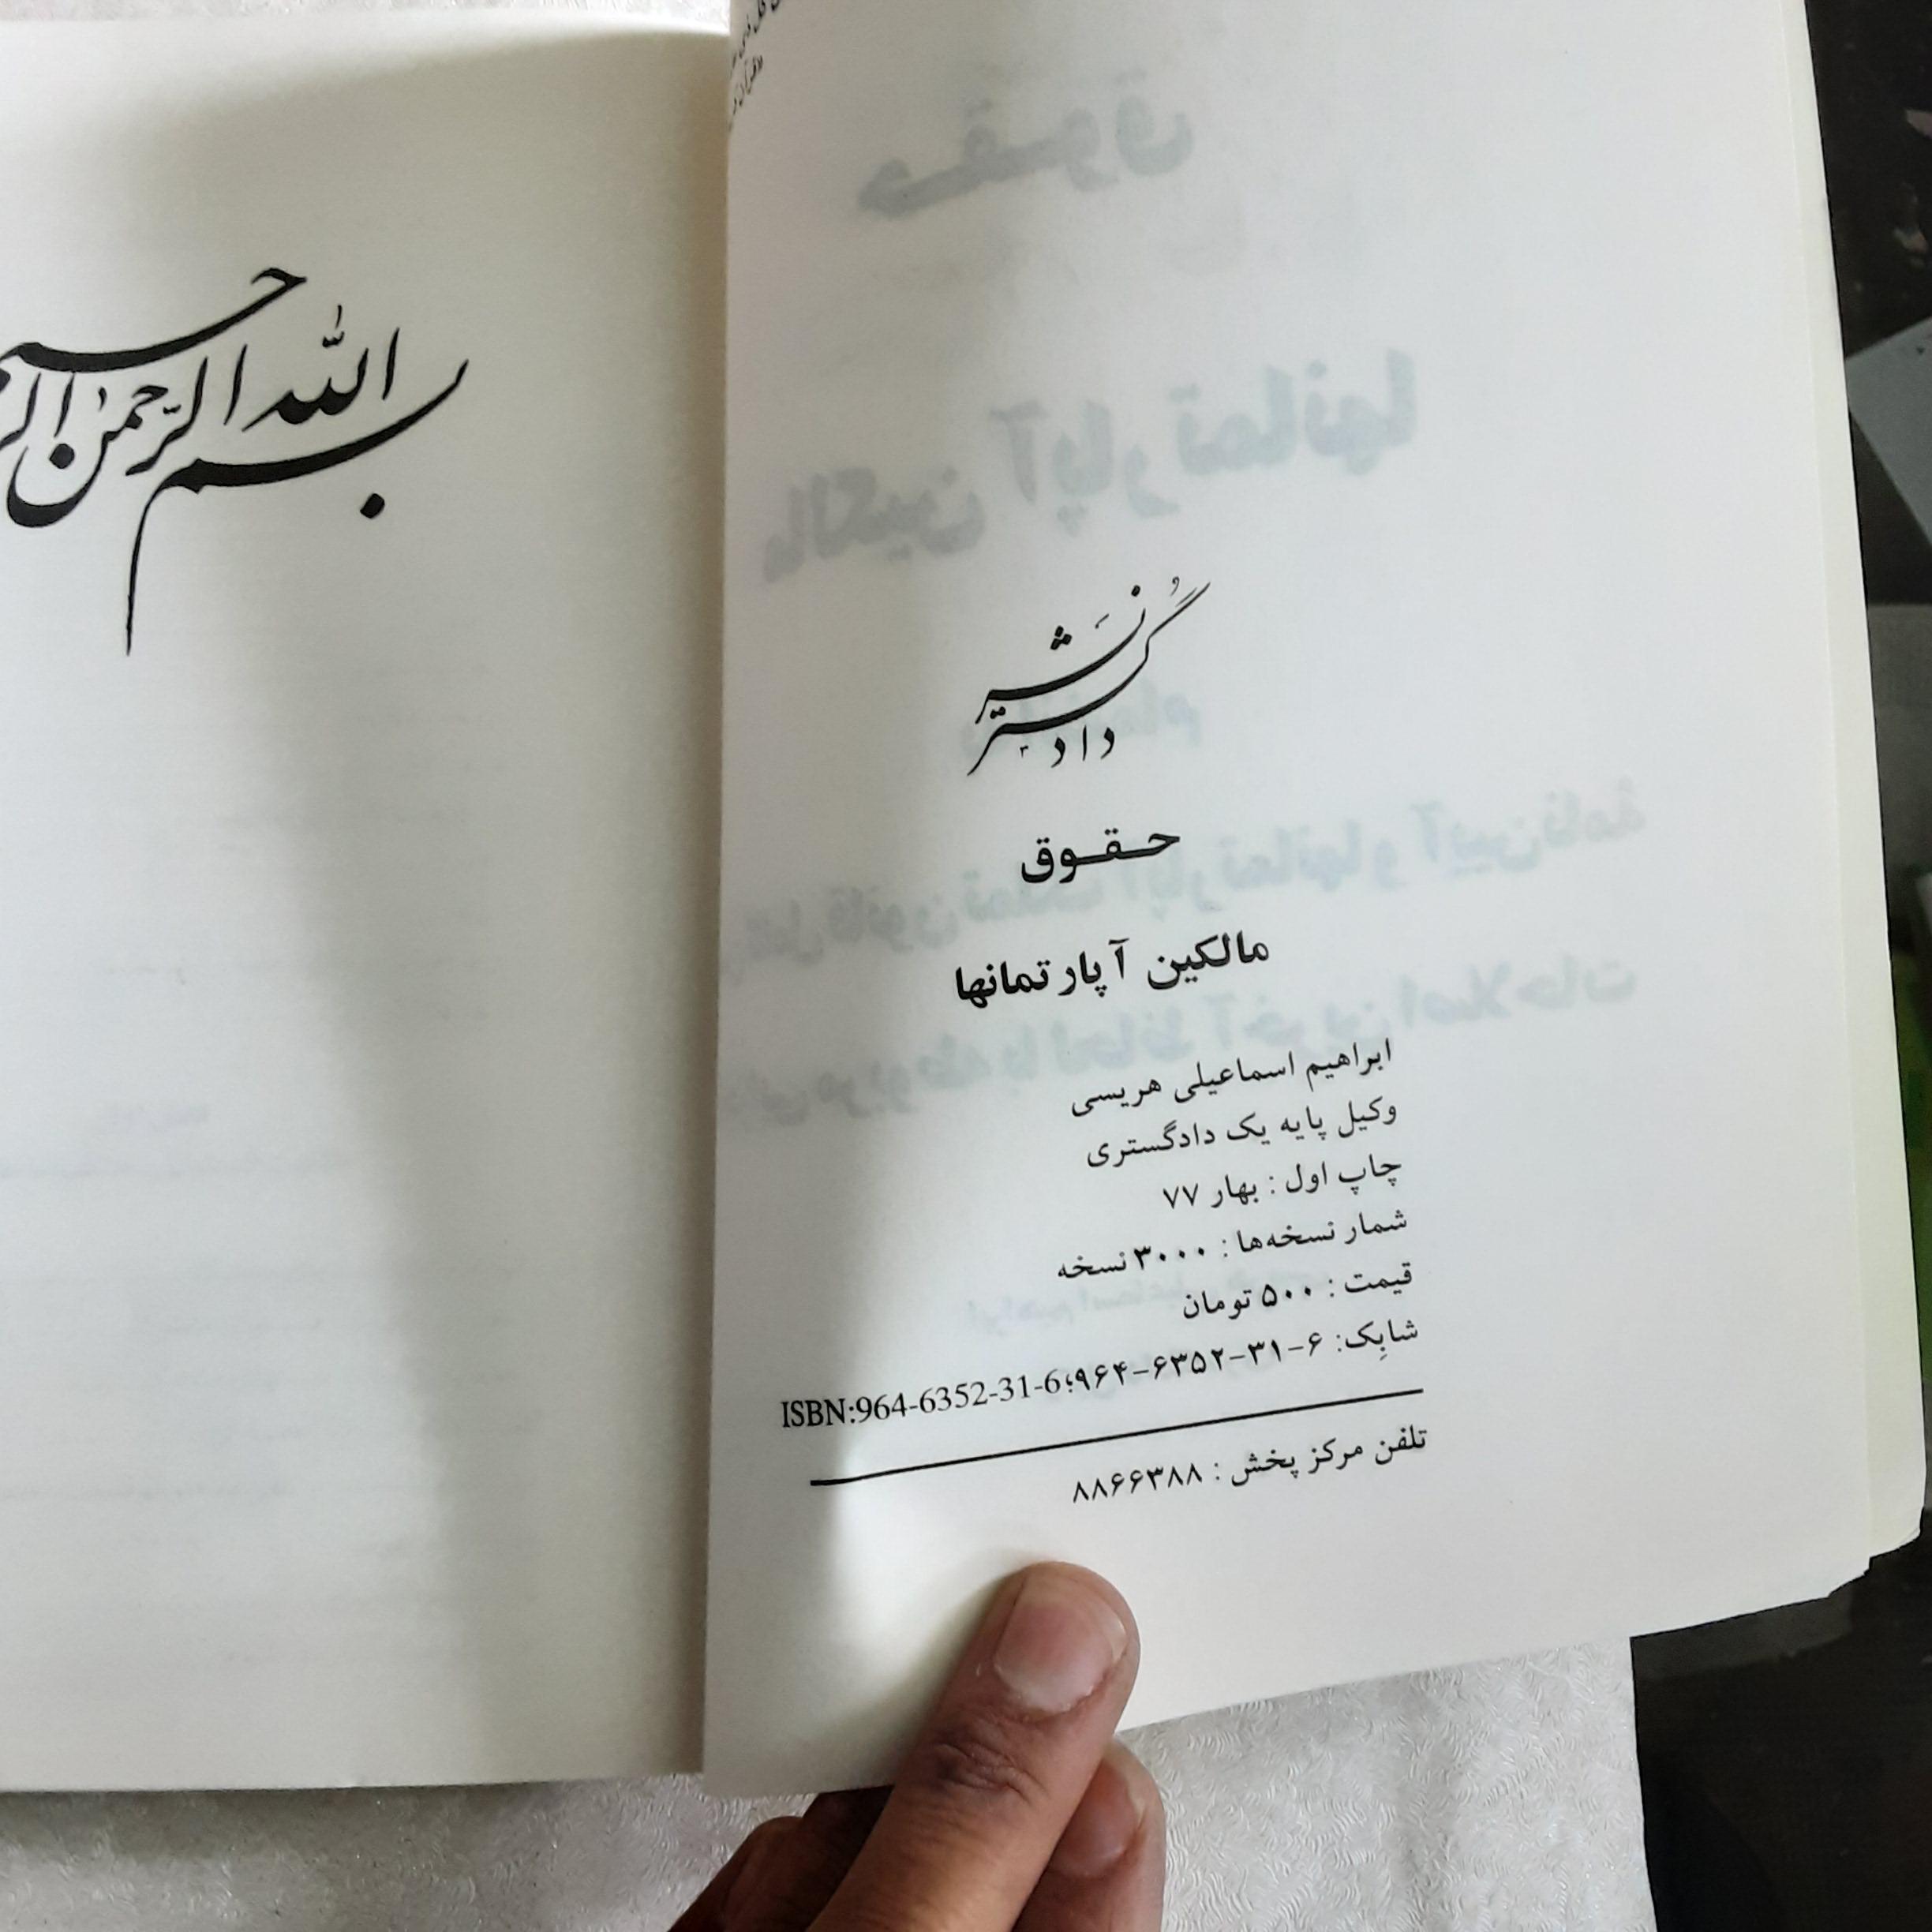 بسم الله الرحمن الرحیم
نشر
دادگستر
حقوق
مالکین آپارتمانها
ابراهیم اسماعیلی هریسی
وکیل پایه یک دادگستری
چاپ اول : بهار ۷۷
شمار نسخه‌ها : ۳۰۰۰ نسخه
قیمت : ۵۰۰ تومان
شابِک: ۶-۳۱-۶۳۵۲-۹۶۴؛ ISBN:964-6352-31-6
تلفن مرکز پخش : ۸۸۶۶۳۸۸